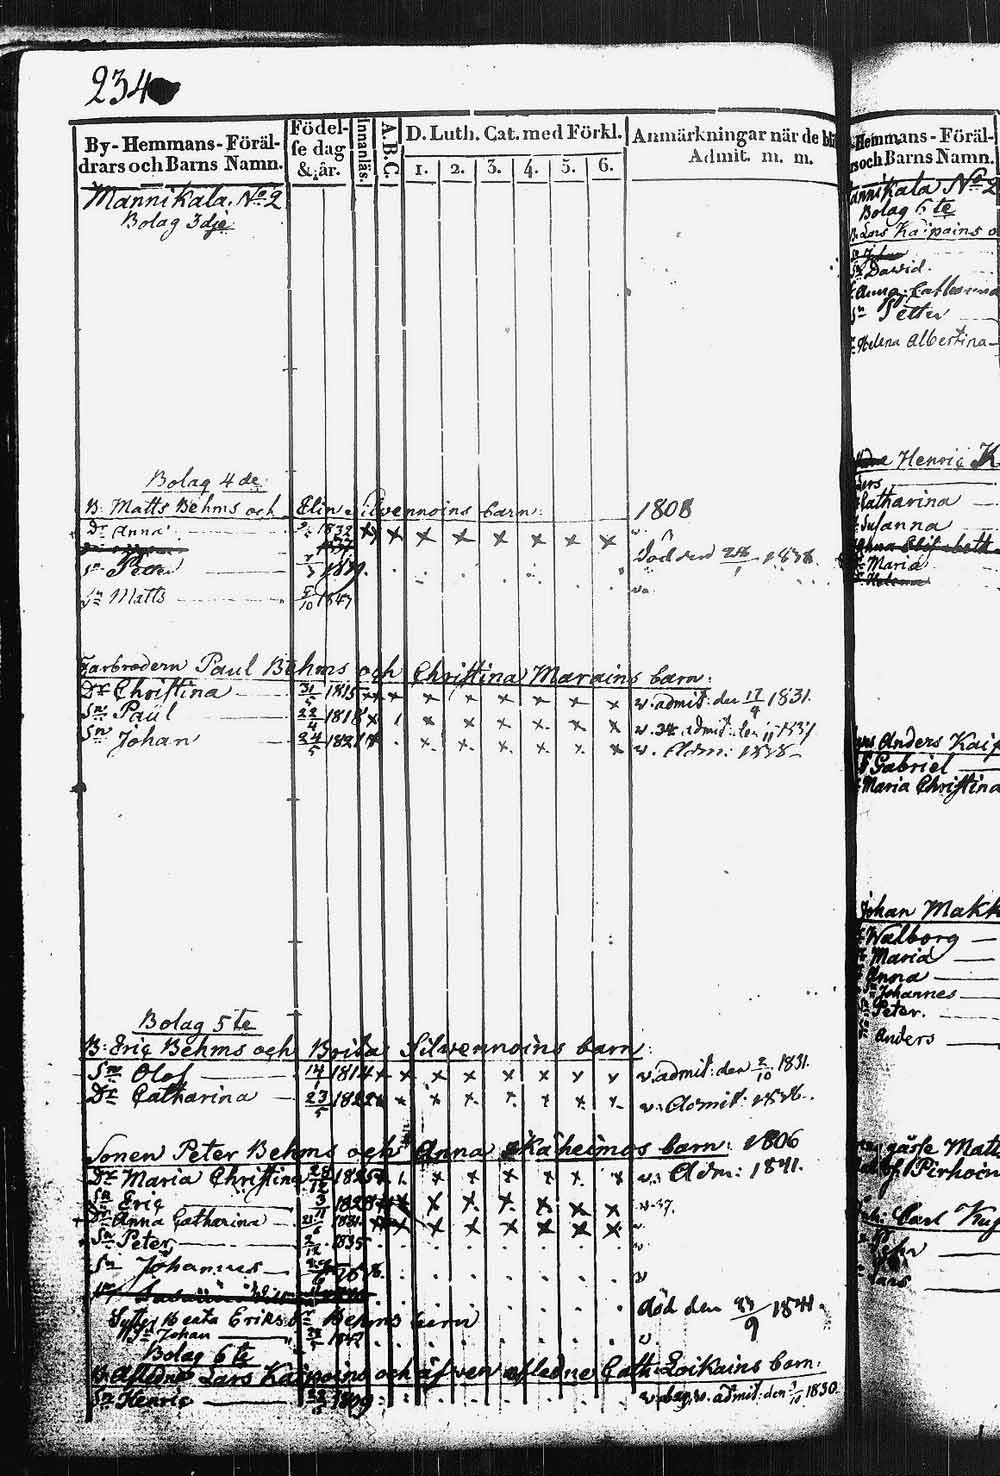 234
By- Hemmans- Föräl-
drars och Barns Namn.
Födel-
se dag
& år.
Innanläs.
A.B.C.
D. Luth. Cat. med Förkl.
1. 2. 3. 4. 5. 6.
Anmärkningar när de bli
Admit. m. m.
Mannikala No 2
Bolag 3dje
Bolag 4de
B: Matts Behms och Elin Silvennoins barn: 1808
Dr Anna 1832 x x x x x x x x
död den 1838.
Sn Peter
Sn Matts 5/10 1847
Farbrodern Paul Behms och Christina Marains barn:
Dr Christina 31/5 1815 x x x x x x x x v. admit: den 17/4 1831.
Sn Paul 1818 x x x x x x x
Sn Johan 24/5 1821 x x x x x x v. Adm: 1838
Bolag 5te
B: Eric Behms och Brita Silvennoins barn:
Sn Olof 14/1 1814 x x x x x x x x v. admit: den 2/10 1831.
Dr Catharina 23/5 1822 x x x x x x x v. Admit. 1838.
Sonen Peter Behms och Anna Käheinos barn: 1806
Dr Maria Christina 1825 x x x x x x x v. Adm: 1841.
Sn Eric 3/11 1828 x x x x x x x x v. 37.
Dr Anna Catharina 1831 x x x x x x x x v
Sn Peter 2/12 1835 v
Sn Johannes v
död den 1841.
Beata Eriks Dr Behms barn
Sn Johan 1847 v
Bolag 6te
B. Afledne Lars Kaipains och äfven afledne Cath: Loikains barn:
Sn Henric 1809 v. admit: den 1830.
Hemmans- Föräl-
och Barns Namn.
No 2
Bolag 6te
B: Lars Kaipains o
Sn David.
Anna Catharina
Sn Petter
Helena Albertina
Henric K
Catharina
Susanna
Anna Elisabeth
Maria
Helena
Anders Kaip
Gabriel
Maria Christina
Johan Makk
Walborg
Maria
Anna
Johannes
Peter.
Anders
Matts
Pirhoin
Carl
Lars